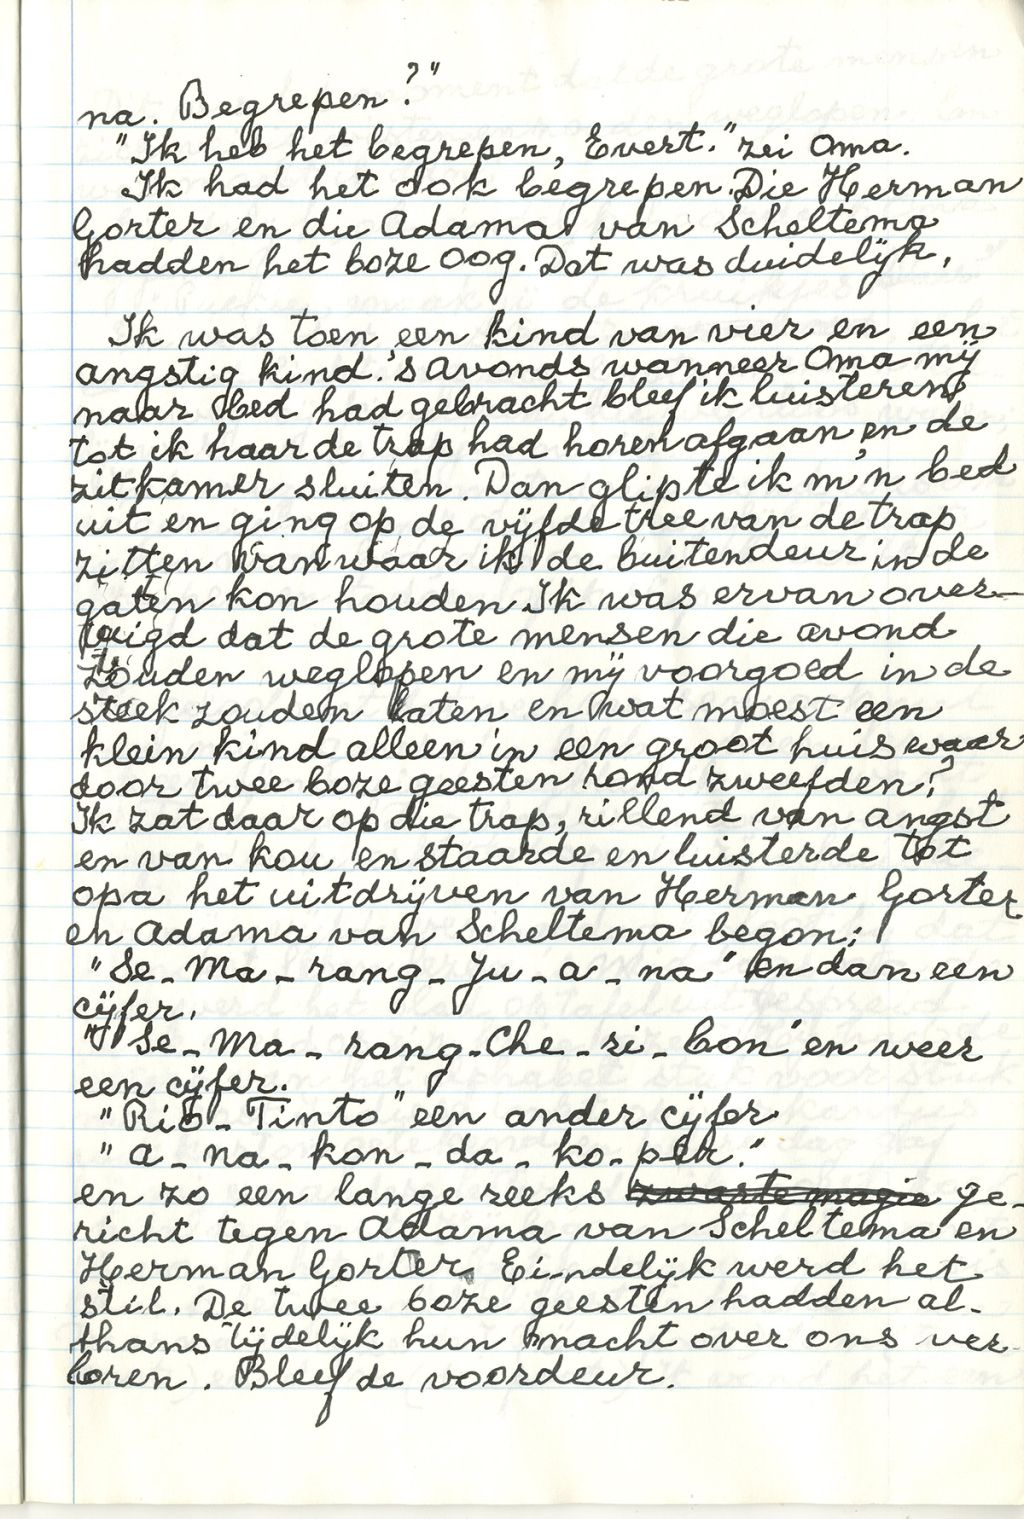 na. Begrepen?"
"Ik heb het begrepen, Evert." zei Oma.
Ik had het ook begrepen. Die Herman
Gorter en die Adama van Scheltema
hadden het boze oog. Dat was duidelijk.
Ik was toen een kind van vier en een
angstig kind. 's Avonds wanneer Oma mij
naar bed had gebracht bleef ik luisteren
tot ik haar de trap had horen afgaan, en de
zitkamer sluiten. Dan glipte ik m'n bed
uit en ging op de vijfde tree van de trap
zitten vanwaar ik de buitendeur in de
gaten kon houden. Ik was ervan over-
tuigd dat de grote mensen die avond
zouden weglopen en mij voorgoed in de
steek zouden laten en wat moest een
klein kind alleen in een groot huis waar
door twee boze geesten rond zweefden?
Ik zat daar op die trap, rillend van angst
en van kou en staarde en luisterde tot
opa het uitdrijven van Herman Gorter
en Adama van Scheltema begon:
"Se-Ma-rang-Ju-a-na" en dan een
cijfer.
"Se-Ma-rang-Che-ri-bon" en weer
een cijfer.
"Rio-Tinto" een ander cijfer
"a-na-kon-da-ko-per."
en zo een lange reeks zwarte magie ge-
richt tegen Adama van Scheltema en
Herman Gorter. Eindelijk werd het
stil. De twee boze geesten hadden al-
thans tijdelijk hun macht over ons ver-
loren. Bleef de voordeur.